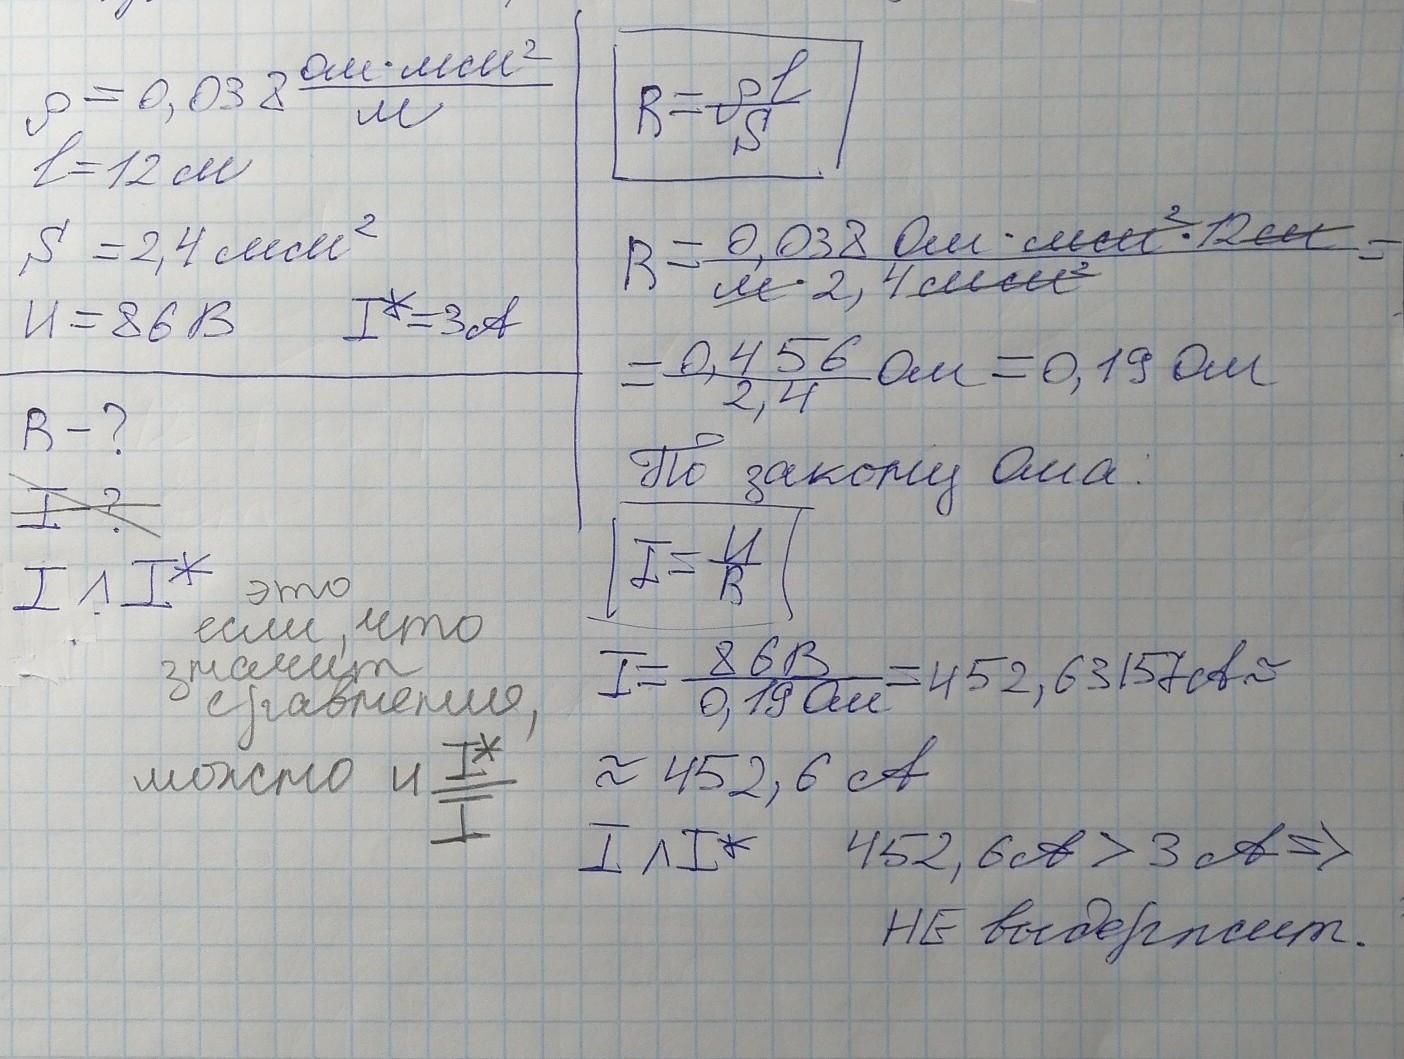 ρ = 0,038 Ом·мм²/м
l = 12 м
S = 2,4 мм²
U = 86 В I* = 3 А
R - ?
I - ?
I ∧ I* это
если, что
значит
сравнения,
можно и I*/I
R = ρl/S
R = 0,038 Ом·мм²·12м / м·2,4мм² =
= 0,456/2,4 Ом = 0,19 Ом
По закону Ома:
I = U/R
I = 86 В/0,19 Ом = 452,63157 А ≈
≈ 452,6 А
I ∧ I* 452,6 А > 3 А =>
НЕ выдержит.